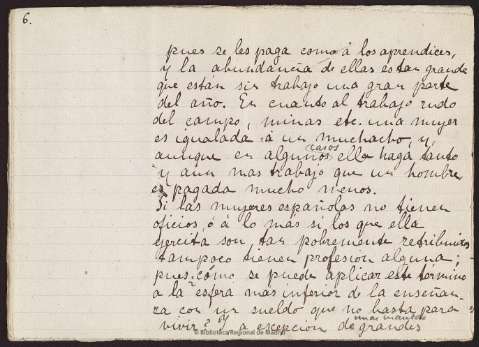 6.
pues se les paga como á los aprendices,
y la abundancia de ellas es tan grande
que estan sin trabajo una gran parte
del año. En cuanto al trabajo rudo
del campo, minas etc. una mujer
es igualada á un muchacho, y,
casos
aunque en algunos ella haga tanto
y aun mas trabajo que un hombre
es pagada mucho menos.
Si las mujeres españolas no tienen
oficios, ó á lo más si los que ella
ejercita son, tan pobremente retribuidos
tampoco tienen profesion alguna;
pues como se puede aplicar este termino
a la esfera mas inferior de la enseñan
za con un sueldo que no basta para
vivir? Y a excepcion de grandes
© Biblioteca Regional de Madrid